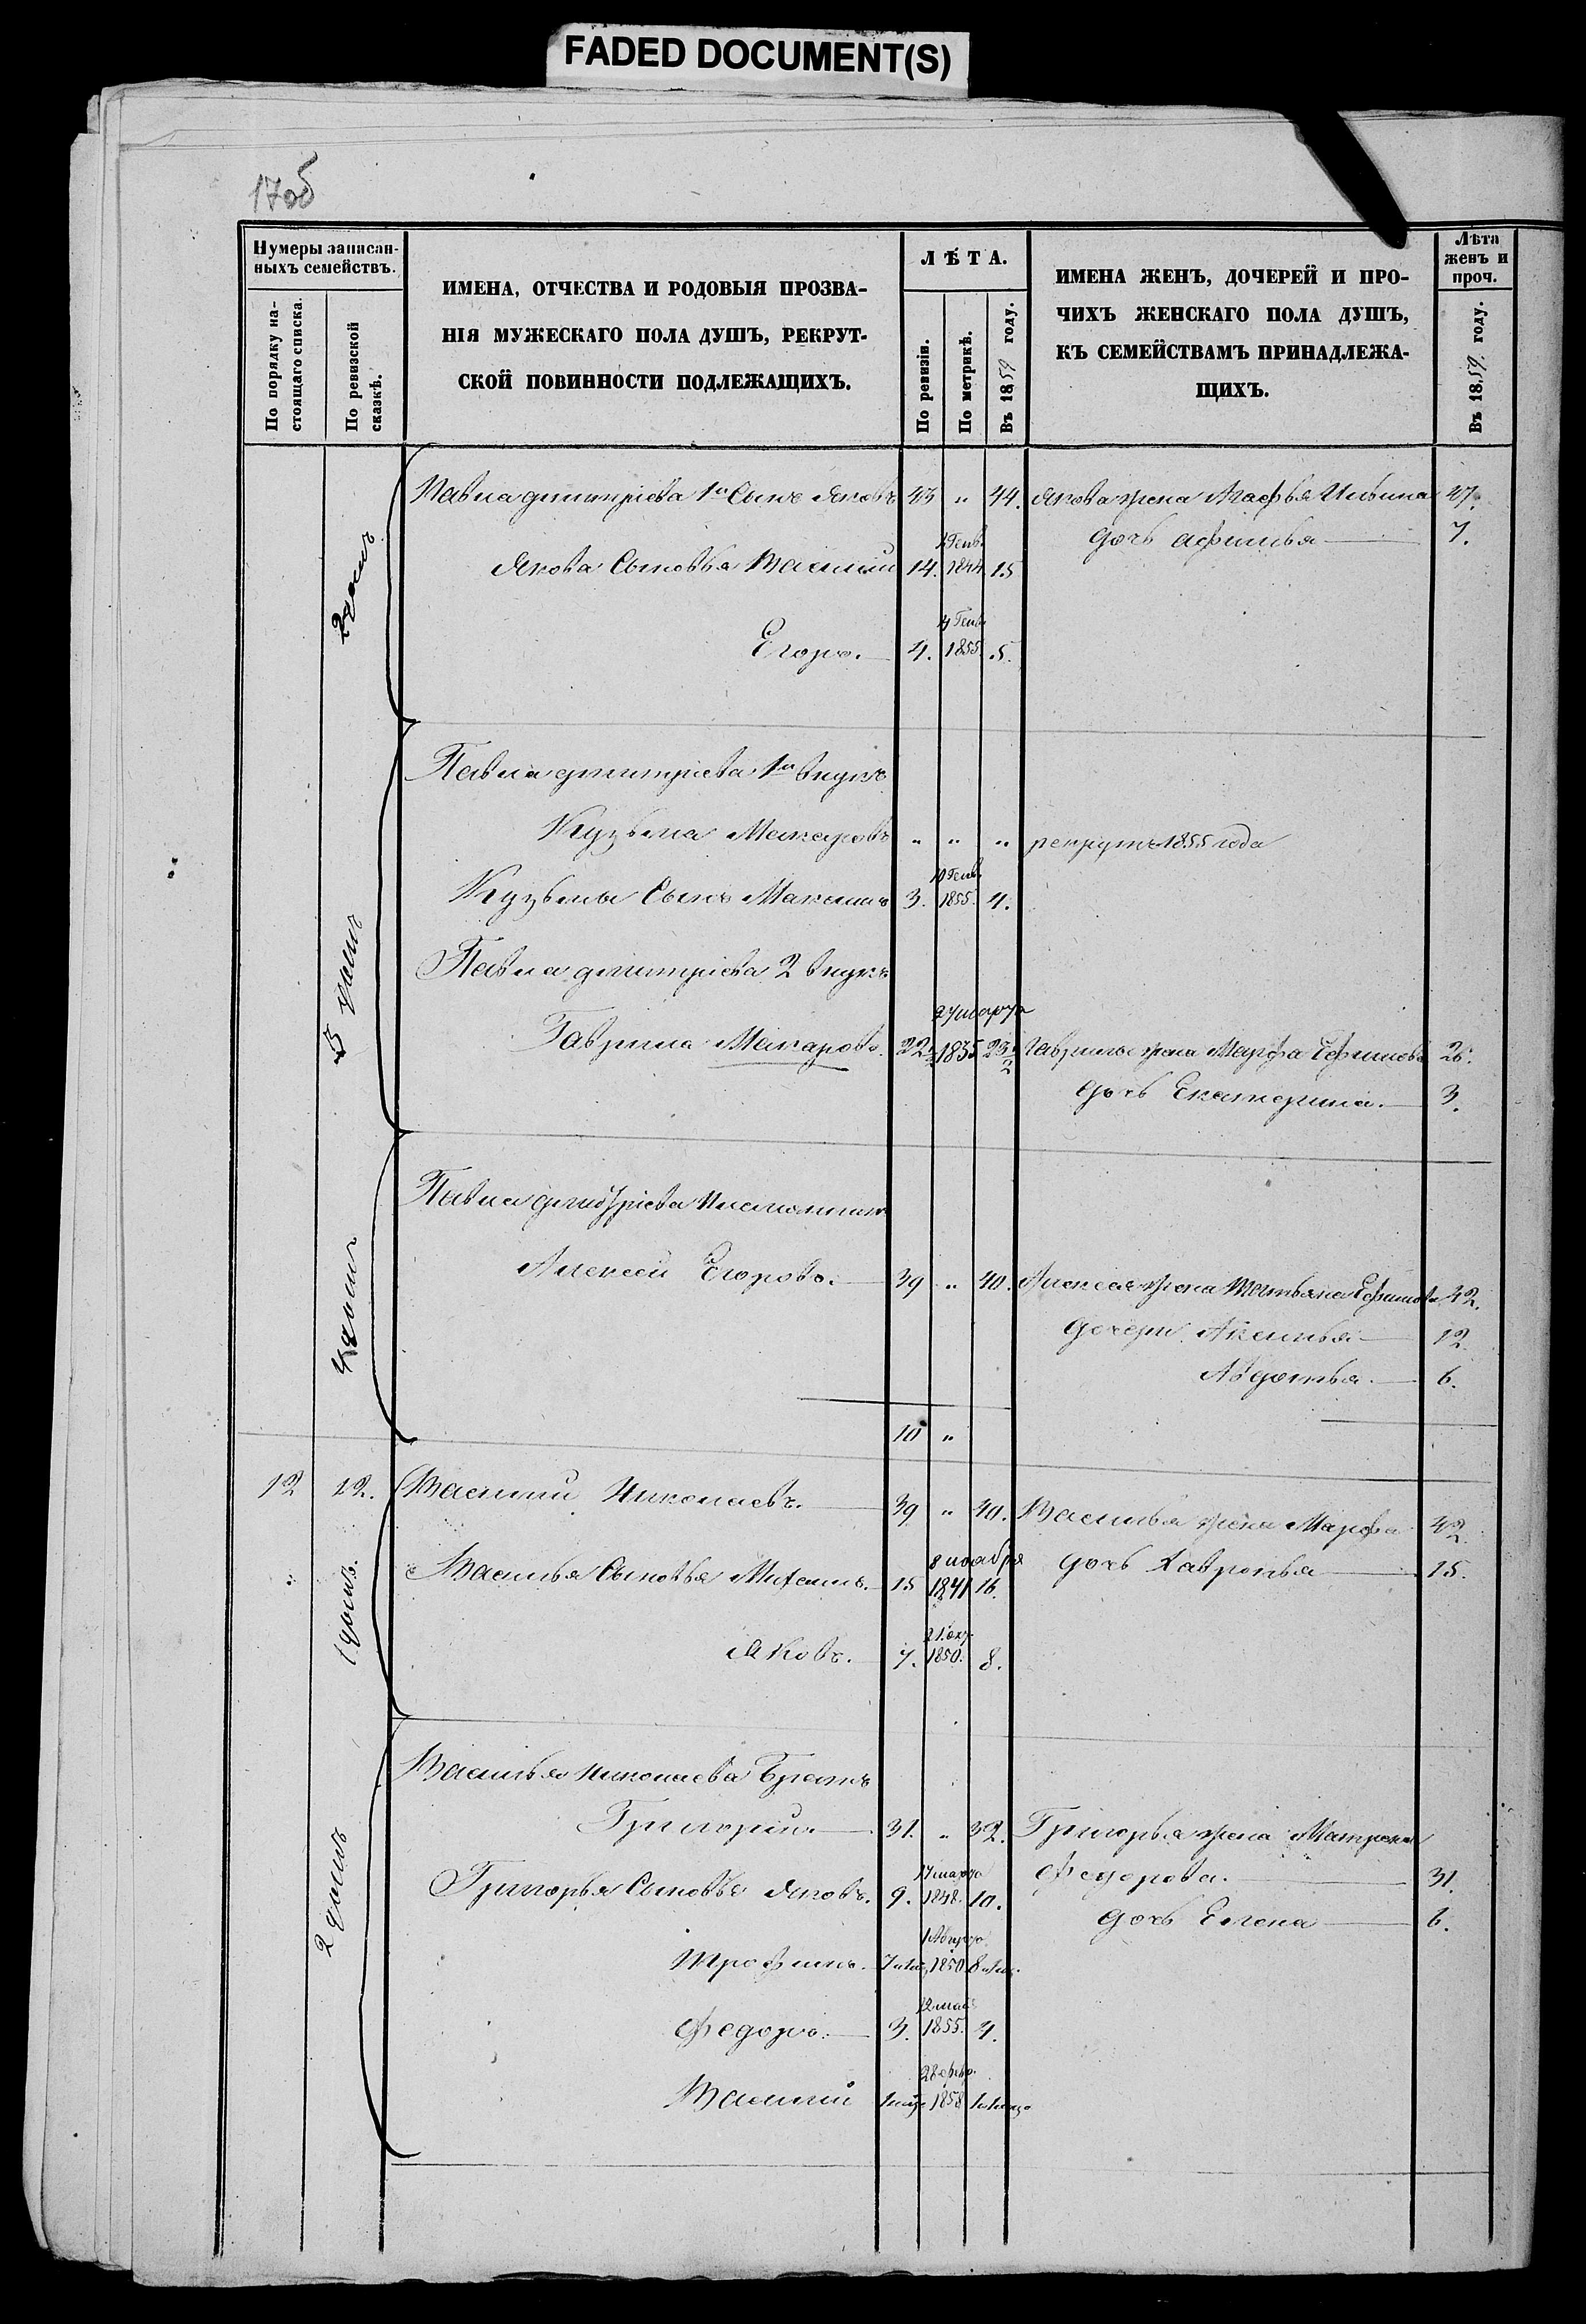 FADED DOCUMENT(S)
17об
Нумеры записан-
ныхъ семействъ.
По порядку на-
стоящаго списка.
По ревизской
сказкѣ.
ИМЕНА, ОТЧЕСТВА И РОДОВЫЯ ПРОЗВА-
НІЯ МУЖЕСКАГО ПОЛА ДУШЪ, РЕКРУТ-
СКОЙ ПОВИННОСТИ ПОДЛЕЖАЩИХЪ.
ЛѢТА.
По ревизіи.
По метрикѣ.
Въ 1859 году.
ИМЕНА ЖЕНЪ, ДОЧЕРЕЙ И ПРО-
ЧИХЪ ЖЕНСКАГО ПОЛА ДУШЪ,
КЪ СЕМЕЙСТВАМЪ ПРИНАДЛЕЖА-
ЩИХЪ.
Лѣта
женъ и
проч.
Въ 1859 году.
2 домъ
Павла дмитріева 1й Сынъ Яковъ 43 „ 44. Якова жена Агафья Ильина 47.
дочь афимья 7.
Генв.
Якова Сыновья Василий 14. 1844 15
Генв.
Егоръ. 4. 1855 5.
3 домъ
Павла дмитріева 1й внукъ
Кузьма Макаровъ „ „ „ рекрутъ 1855 года
10 Генв.
Кузьмы Сынъ Максимъ 3. 1855. 4.
Павла дмитріева 2 внукъ
27 марта
Гаврила Макаровъ. 22½ 1835 23½ Гаврилы жена Марфа Ефимова 26.
дочь Екатерина. 3.
4 домъ
Павла дмитріева племянникъ
Алексей Егоровъ. 39 „ 40. Алексея жена Татьяна Ефимова 42.
дочери Аксинья 12
Авдотья. 6.
10 „
12 12. Василий Николаевъ. 39 „ 40. Василья жена Марфа 42
1 домъ.
8 ноября
Василья Сыновья Михаилъ. 15 1841 16. дочь Хавронья 15.
21 окт.
Яковъ. 7. 1850. 8.
2 домъ
Василья Николаева Братъ
Григорий 31. „ 32. Григорья жена Матрена
Федорова. 31.
17 марта
Григорья Сыновья Яковъ. 9. 1848. 10.
дочь Елена 6.
1 Августа
Трофимъ. 1850
12 мая
Федоръ. 3. 1855. 4.
28 февр.
Василий 1858